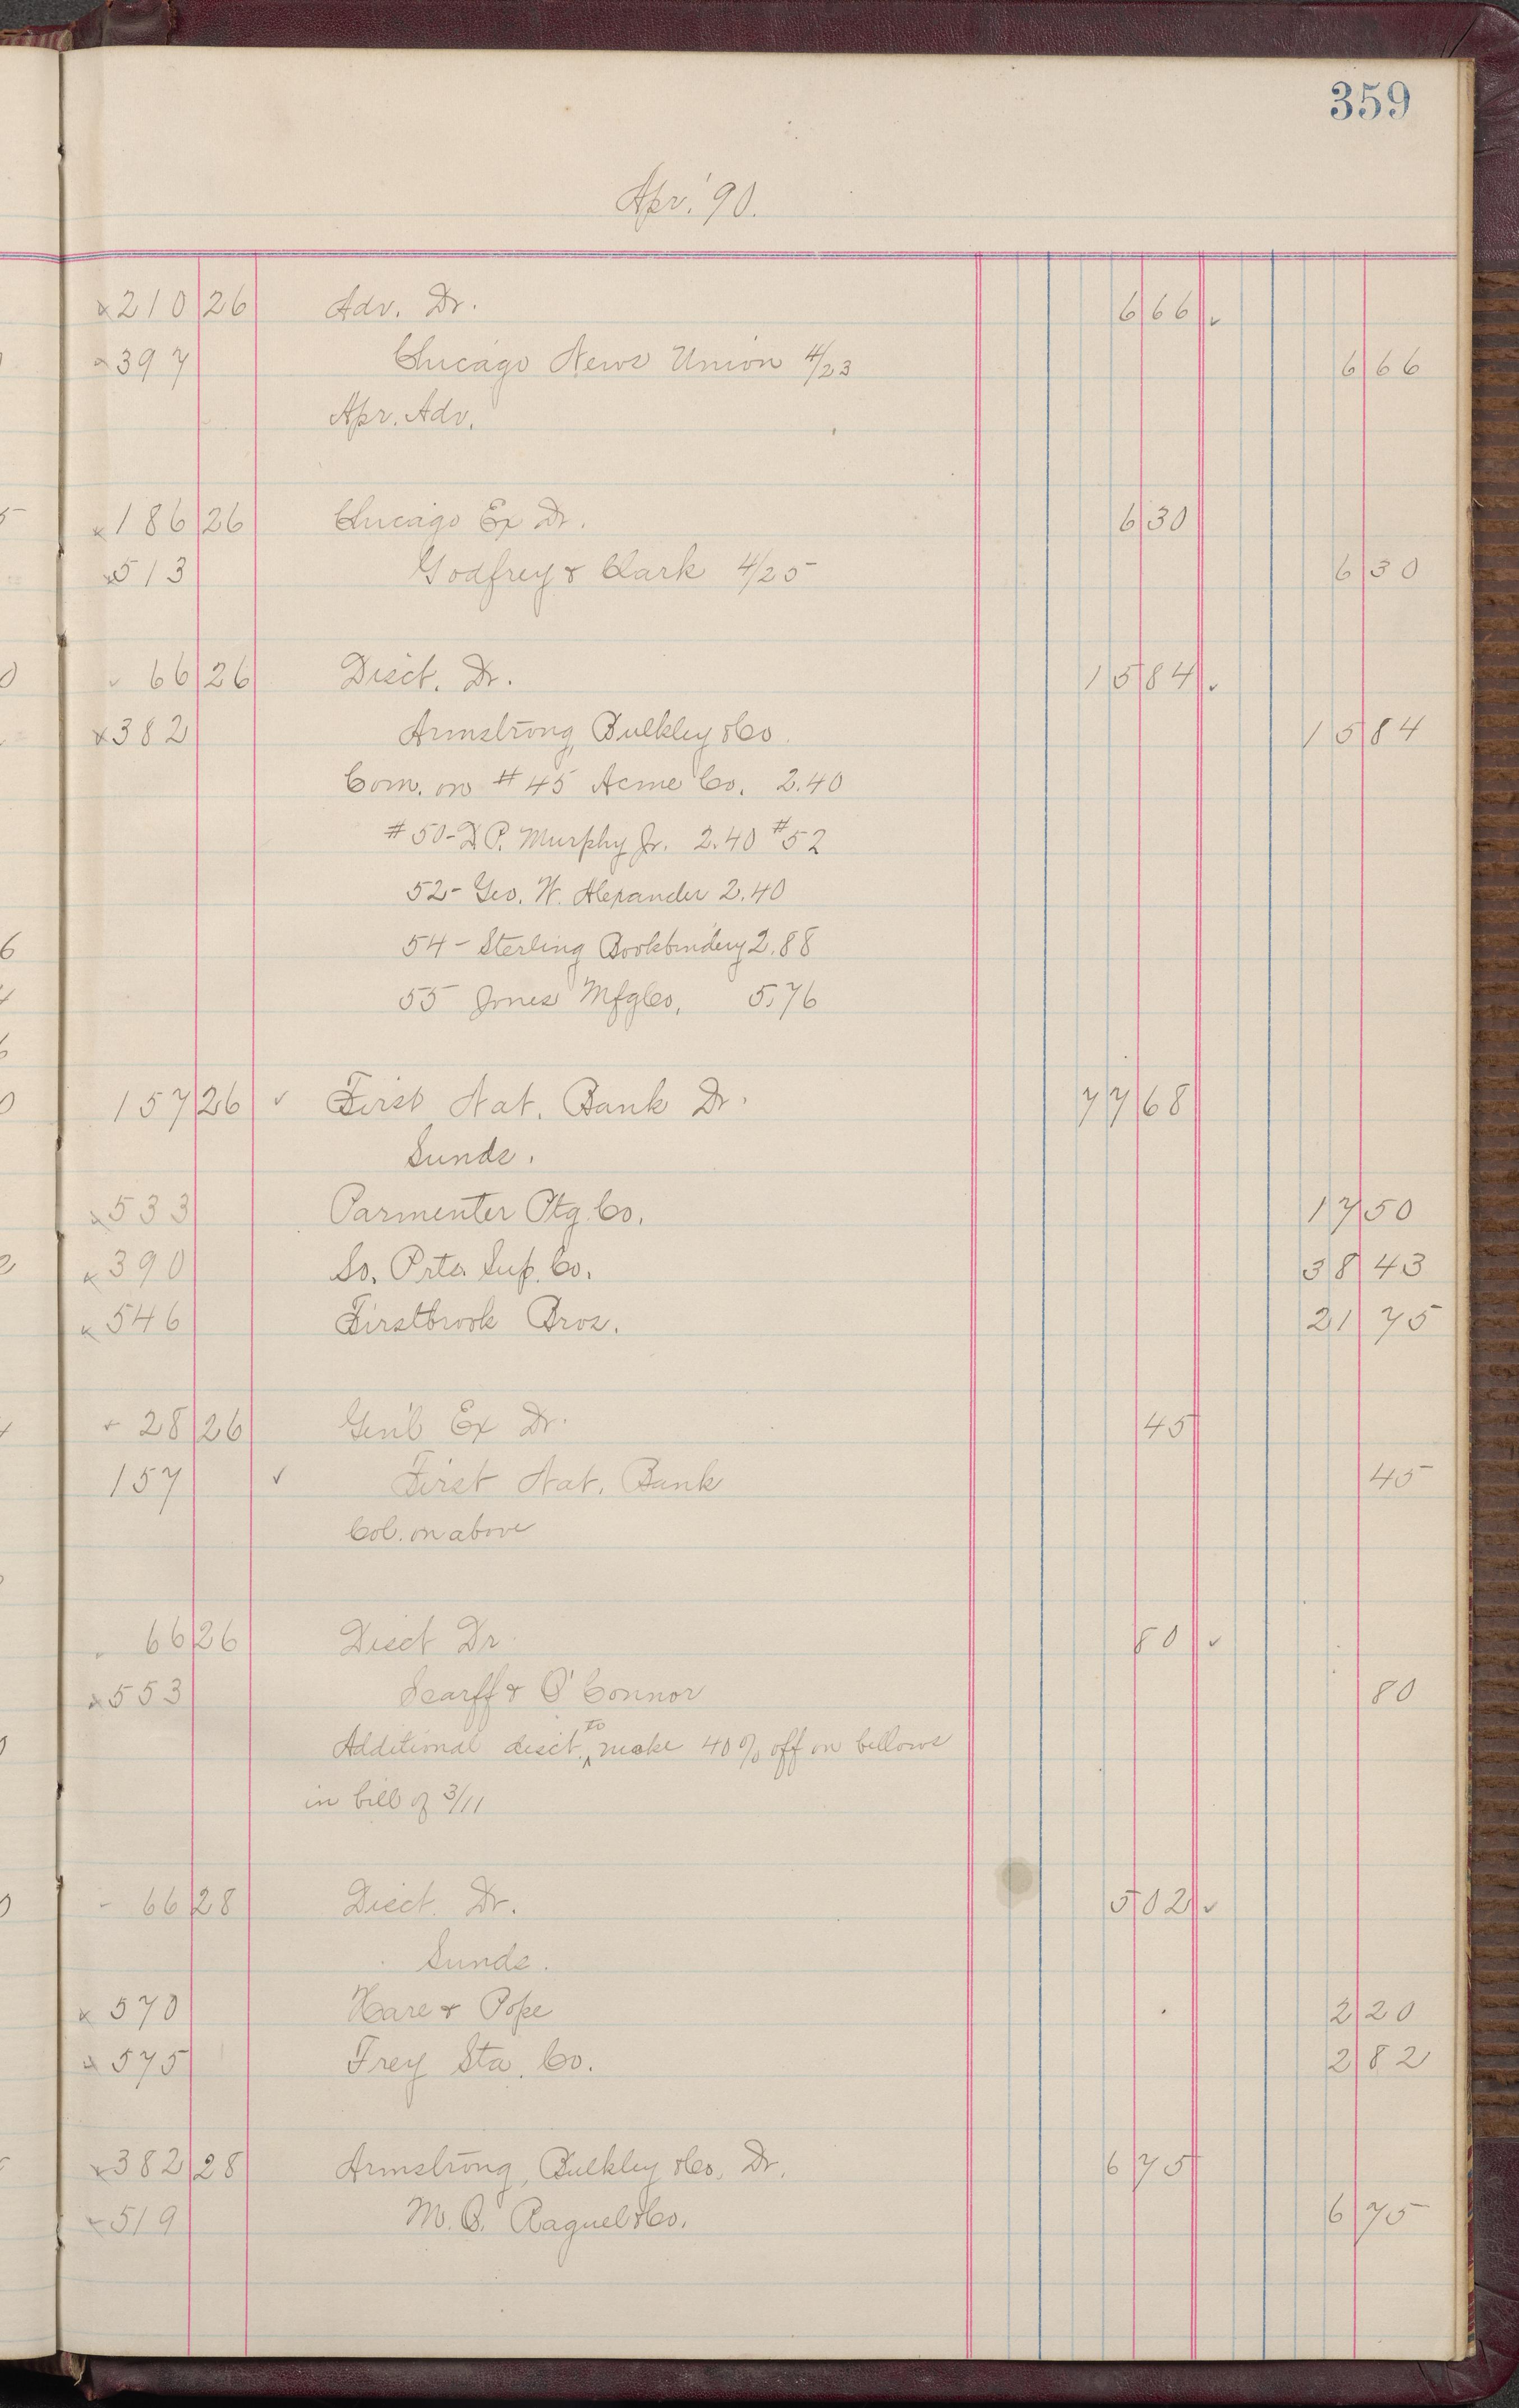 359
Apr. '90.
210 26 Adv. Dr. 6 66
397 Chicago News Union 4/23 6 66
Apr. Adv.
186 26 Chicago Ex Dr. 6 30
513 Godfrey & Clark 4/25 6 30
66 26 Disct. Dr. 15 84
382 Armstrong, Bulkley & Co. 15 84
Com. on #45 Acme Co. 2.40
#50- D.P. Murphy Jr. 2.40 #52
52- Geo. W. Alexander 2.40
54- Sterling Bookbindery 2.88
55 Jones Mfg Co. 5.76
157 26 ✓ First Nat. Bank Dr. 77 68
Sunds.
533 Parmenter Ptg. Co. 17 50
390 So. Prtrs Sup. Co. 38 43
546 Firstbrook Bros. 21 75
28 26 Gen'l Ex Dr. 45
157 ✓ First Nat. Bank 45
Col. on above
66 26 Disct Dr 80
553 Scarff & O'Connor 80
Additional disct. to make 40% off on bellows
in bill of 3/11
66 28 Disct. Dr. 5 02
Sunds.
570 Hare & Pope 2 20
575 Frey Sta. Co. 2 82
382 28 Armstrong, Bulkley & Co. Dr. 6 75
519 M.B. Raguel & Co. 6 75